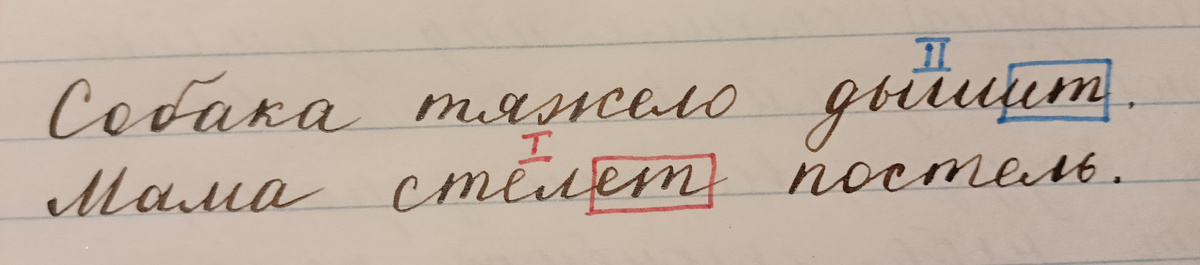 II
Собака тяжело дышит.
I
Мама стелет постель.